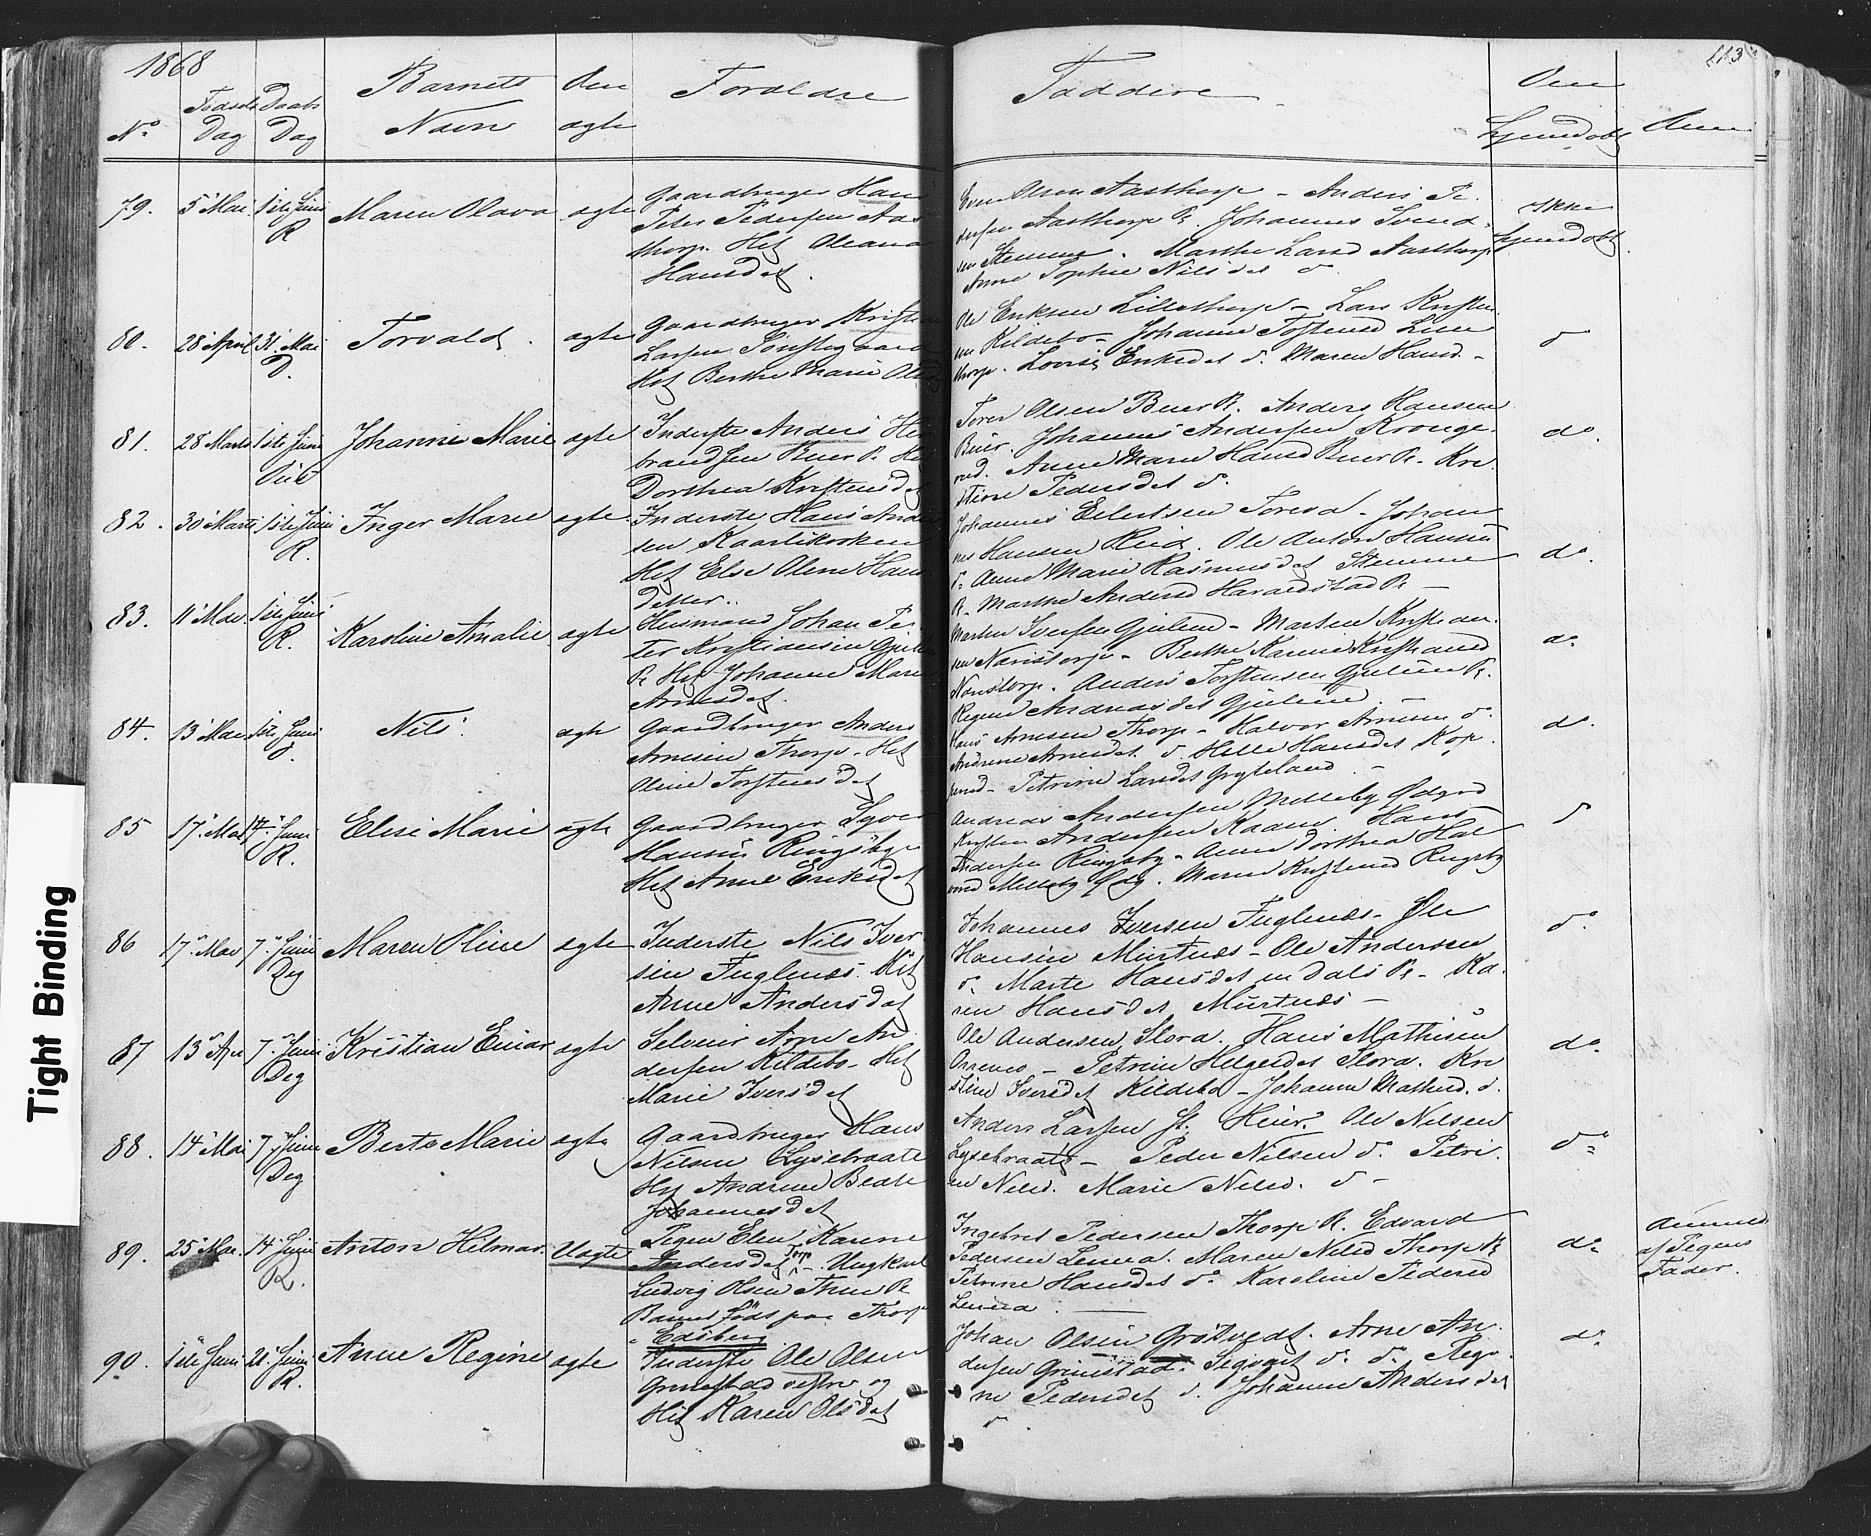 1868
113
No
Fødsels Dag
Daabs Dag
Barnets Navn
Om ægte
Forældre
Faddere
Om hjemdøbt
Anm
79. 5 Mai 1ste Juni R Maren Olava ægte
Gaardbruger Hans
Peter Pedersen Aas
thorp. Het Oleana
Hansdet.
Even Olsen Aasthorp - Anders Pe
dersen Aasthorp R. Johannes Svend
sen Stemme. Marthe Larsd Aasthorp
Anne Sophie Nilsdet do
Ikke
hjemdøbt.
80. 28 April 31. Mai Torvald. ægte
Gaardbruger Kristian
Larsen
Het Berthe Marie Olsd
Ole Eriksen Lillethorp - Lars Kristen
sen Kildebo - Johanne Tostensd Lille
thorp. Lovise Eriksdet do. Maren Hansd -
do
81. 28 Marts 1ste Juni Johanne Marie ægte
Inderste Anders He
brandsen Buer R. Het
Dorthea Kristensdet
Torer Olsen Buer R. Anders Hansen
Buer. Johannes Andersen Kronge
rud. Anne Marie Hansd Buer R. Kri
stine Pedersdet do.
do.
82. 30 Marts 1ste Juni R. Inger Marie ægte
Inderste Hans Ander
sen Kaatikroken
Het Else Oline Hans
detter.
Johannes Eilertsen Toresa - Johan
nes Hansen Heid. Ole Anton Hansen
do. Anne Marie Rasmusdet Stemme
R. Marthe Andersd Haraldstad R -
do.
83. 11 Mai 1ste Juni R. Karoline Amalie ægte
Husmand Johan Pe
ter Kristiansen Gjulem
R Het Johanne Marie
Arnesdet.
Morten Iversen Gjulem - Morten Kristian
sen Navestorp - Berthe Karine Kristiansd
Navstorp. Anders Torstensen Gjulem R.
Regine Andreasdet Gjulem.
do.
84. 13 Mai 1ste Juni Nils. ægte
Gaardbruger Anders
Arnesen Thorp - Het
Oline Torstensdet
Hans Arnesen Thorp - Halvor Arnesen do.
Andrine Arnesdet do Helle Hansdet Kop
perud - Petrine Larsdet Gryteland. -
do.
85 17 Mai 14 Juni R. Elise Marie ægte
Gaardbruger Syver
Hansen Ringsby
Het Anne Eriksdet
Andreas Andersen Melleby Ødgrd
Kristen Andersen Kaaen. Hans
Andersen Ringsby - Anne Dorthea Hal
vorsd Melleby Ødg. Maren Kristensd Ringsby
do
86 17 Mai 7. Juni Deg Maren Oline ægte
Inderste Nils Iver
sen Fuglenæs. Het
Anne Andersdat
Johannes Iversen Fuglenæs - Ole
Hansen Murtnæs - Ole Andersen
do. Marte Hansdet m Dals R - Ka
ren Hansdet Murtnæs -
do.
87 13 Apr 7. Juni Deg Kristian Einar ægte
Selveier Arne An
dersen Kildebo - Het
Marie Iversdet
Ole Andersen Slora. Hans Mathisen
- Petrine Helgesdet Slora. Kri
stine Iversdet Kildebo - Johanne Mathisd. do.
do.
88. 14 Mai 7. Juni Deg Berte Marie ægte
Gaardbruger Hans
Nilsen Lysebraate
Het Andrine Beate
Johannesdet
Anders Larsen St. Heier. Ole Nilsen
Lysebraate - Peder Nilsen do. Petri
ne Nilsd. Marie Nilsd. do -
do.
89. 25 Mai. 14 Juni R. Anton Hilmar. Uægte
Pigen Elen Karine
Andersdet Torp - Ungkarl
Ludvig Olsen Thue R
Barnet født paa Thorp
i Edsberg
Ingebret Pedersen Thorp R. Edvard
Pedersen Lennea. Maren Nilsd Thorp R
Petrine Hansdet do. Karoline Pedersd
Lennea.
do.
Anmeld
af Pigens
Fader.
90. 1ste Juni 21. Juni R. Anne Regine ægte
Inderste Ole Olsen
Grimstad vestre og
Het Karen Olsdat
Johan Olsen Grøtvedt. Arne An
dersen Grimstad. Sigvart do. do. Regi
ne Pedersdet do. Johanne Andersdet
do
do.
Tight Binding